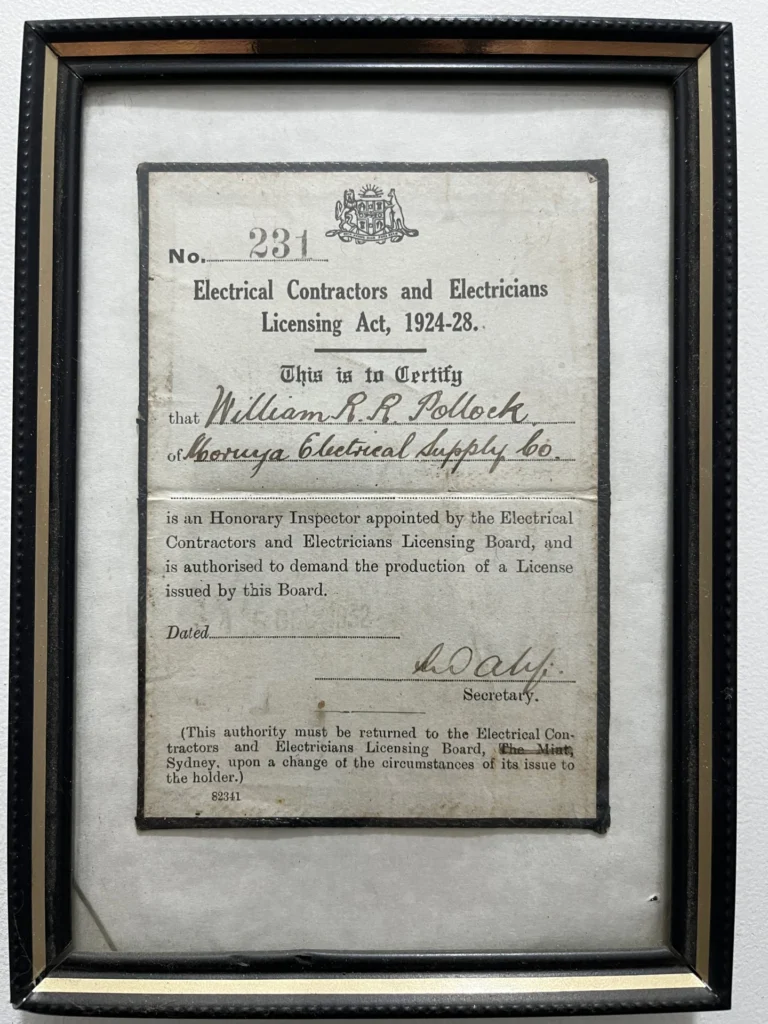 No. 231
Electrical Contractors and Electricians
Licensing Act, 1924-28.
This is to Certify
that William R. R. Pollock
of Moruya Electrical Supply Co.
is an Honorary Inspector appointed by the Electrical
Contractors and Electricians Licensing Board, and
is authorised to demand the production of a License
issued by this Board.
Dated
Secretary.
(This authority must be returned to the Electrical Con-
tractors and Electricians Licensing Board, The Mint,
Sydney, upon a change of the circumstances of its issue to
the holder.)
82341